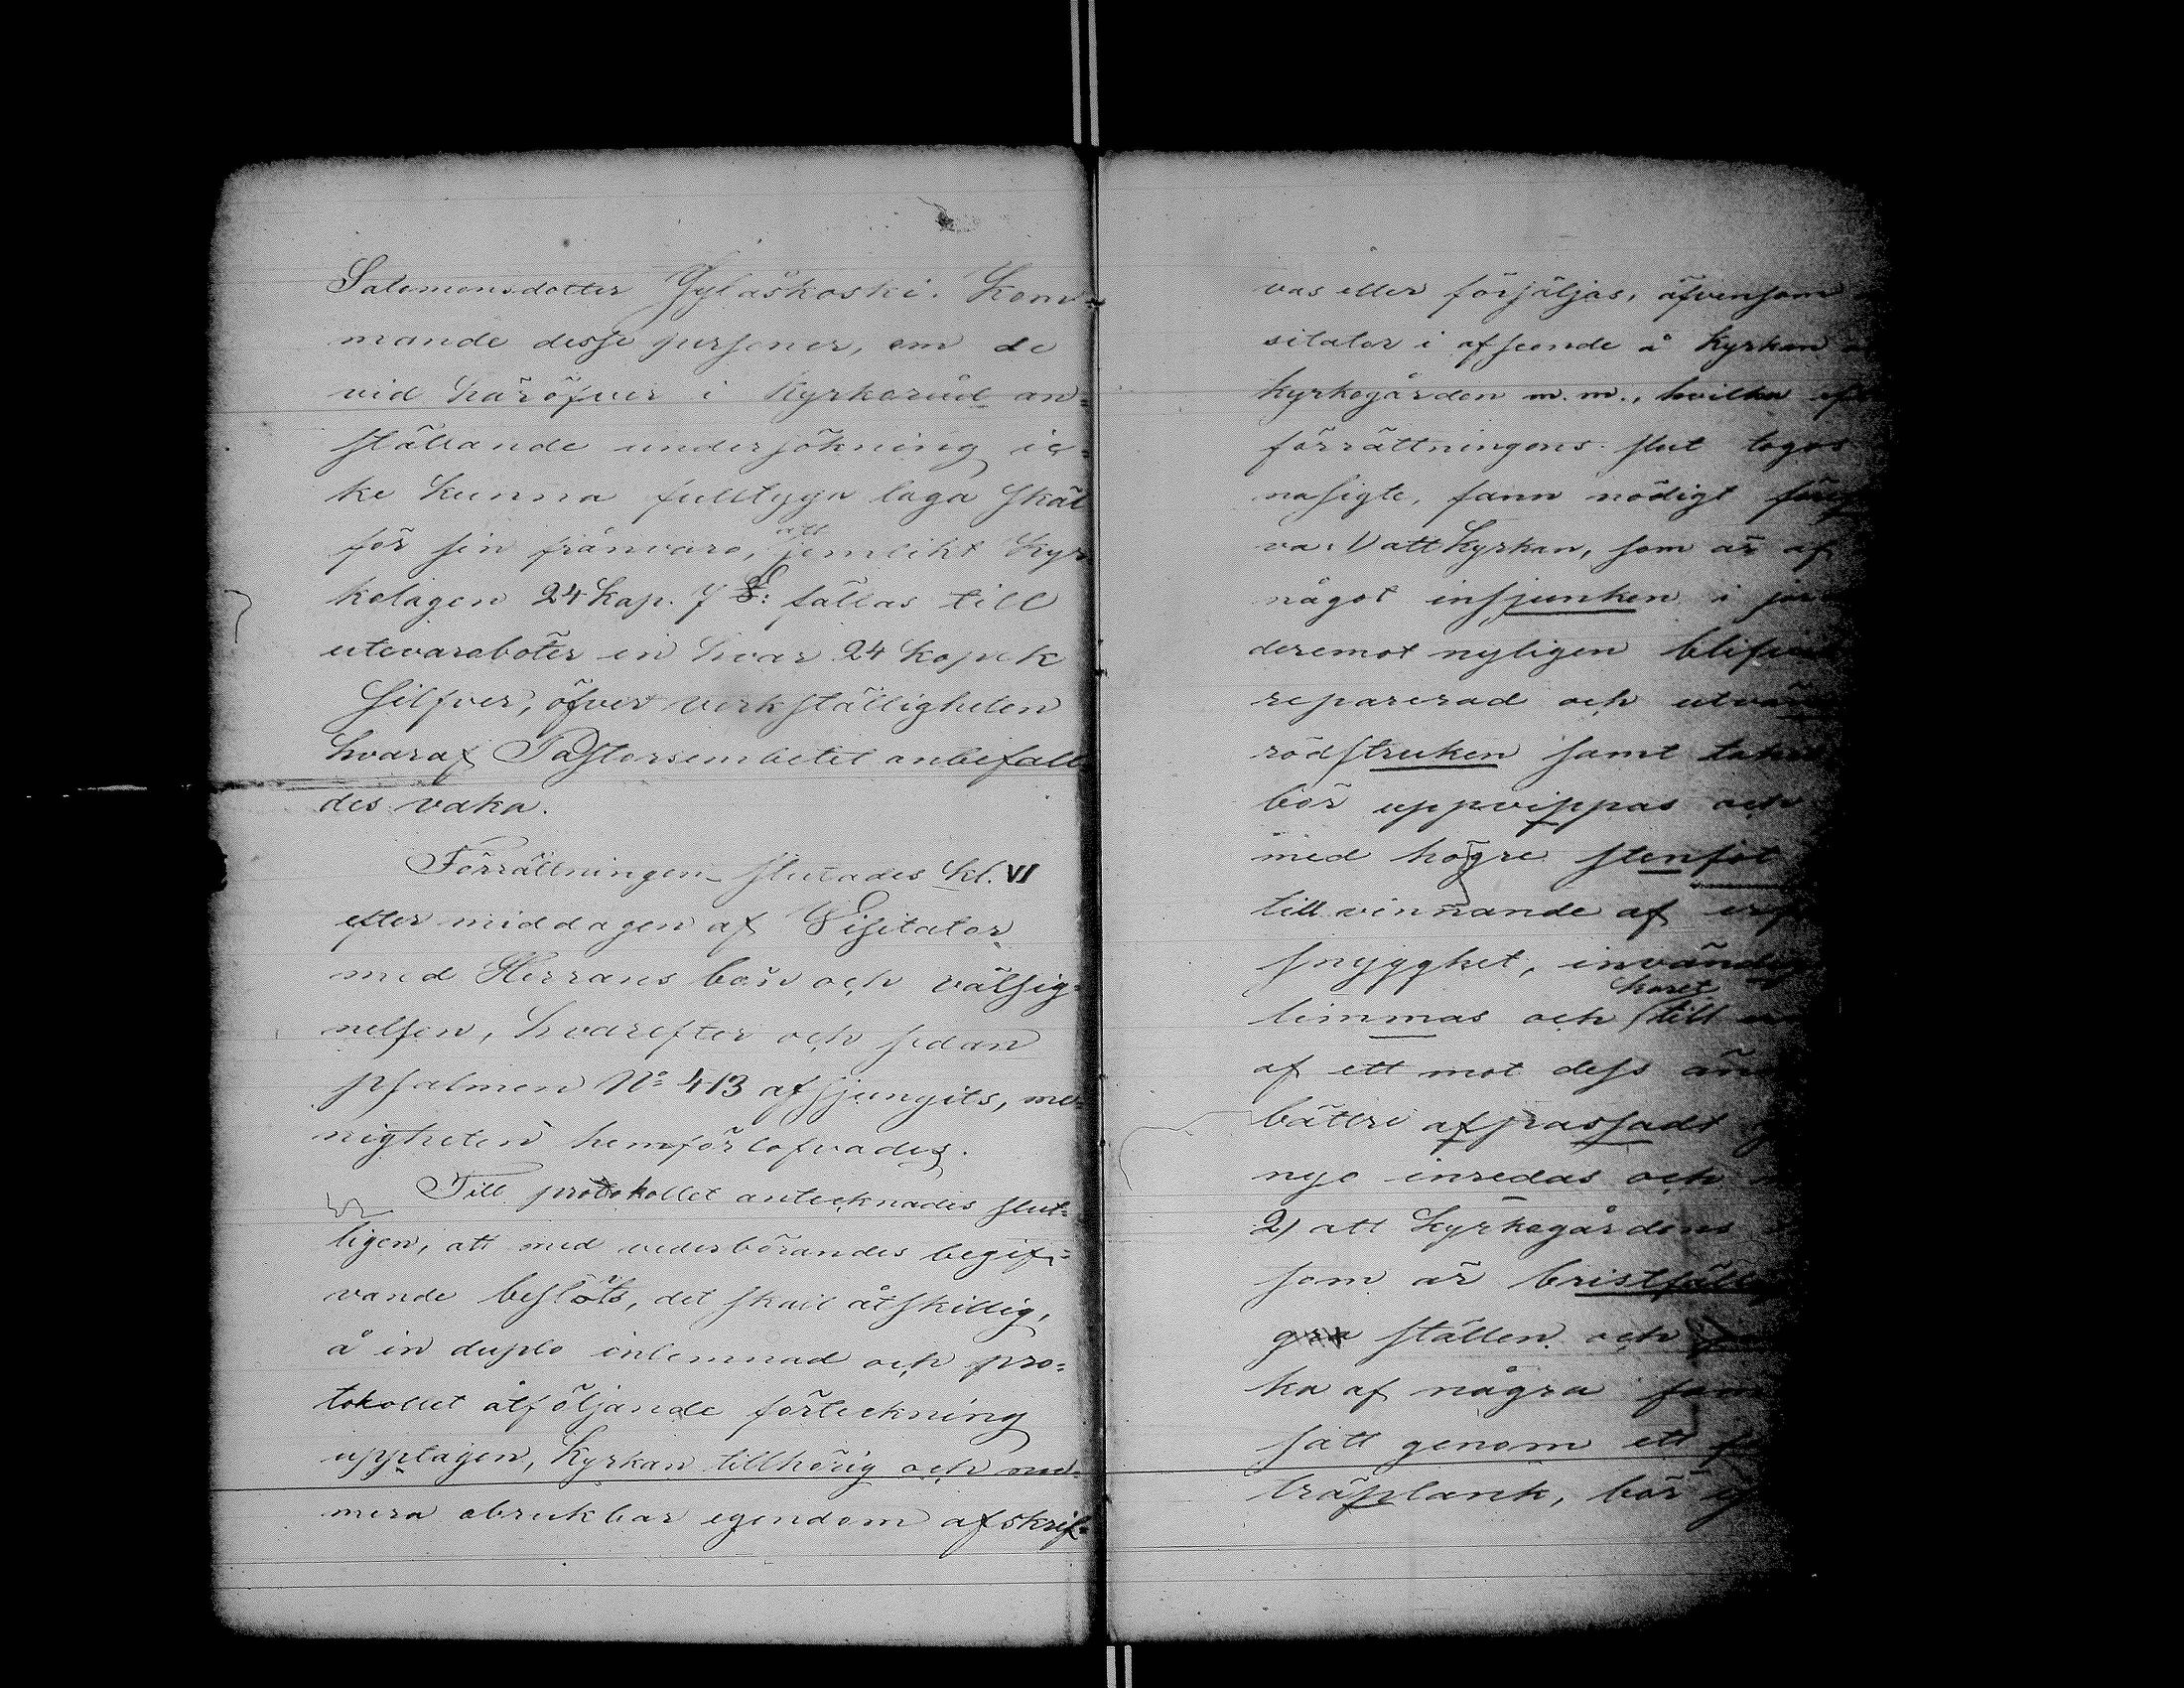 Salomonsdotter Jyläskoski. Kom-
mande desse personer, om de
vid häröfver i Kyrkoråd an=
ställande undersökning ic=
ke kunna fulltyga laga skäl
för sin frånvaro, att jemlikt Kyr
kolagen 24 Kap. 7 §: fällas till
utevaraböter en hvar 24 kopek
Silfver, öfver verkställigheten
hvaraf Pastorsembetet anbefall=
des vaka.
Förrättningen slutades kl. VI
efter middagen af Visitator
med Herrans bön och välsig=
nelsen, hvarefter och sedan
psalmen No 413 afsjungits, me=
nigheten hemförlofvades.
Till protokollet antecknades slut=
ligen, att med vederbörandes begif=
vande beslöts, det skall åtskillig,
å in duplo inlemnad och pro=
tokollet åtföljande förteckning
upptagen, Kyrkan tillhörig och nu=
mera obrukbar egendom afskrif=
vas eller försäljas, äfvensom
sitator i afseende å Kyrkan
kyrkogården m. m., hvilka
förrättningens slut togos
nasigte, fann nödigt
va: 1) att Kyrkan, som är af
något insjunken i
deremot nyligen
reparerad och
rödstruken samt
bör uppvippas och
med högre stenfot
till vinnande af
snygghet,
limmas och koret till
af ett mot dess
bättre afpassadt
nyo inredas och
2) att Kyrkogårdens
som är
gra ställen och
ka af några
satt genom ett
träplank, bör